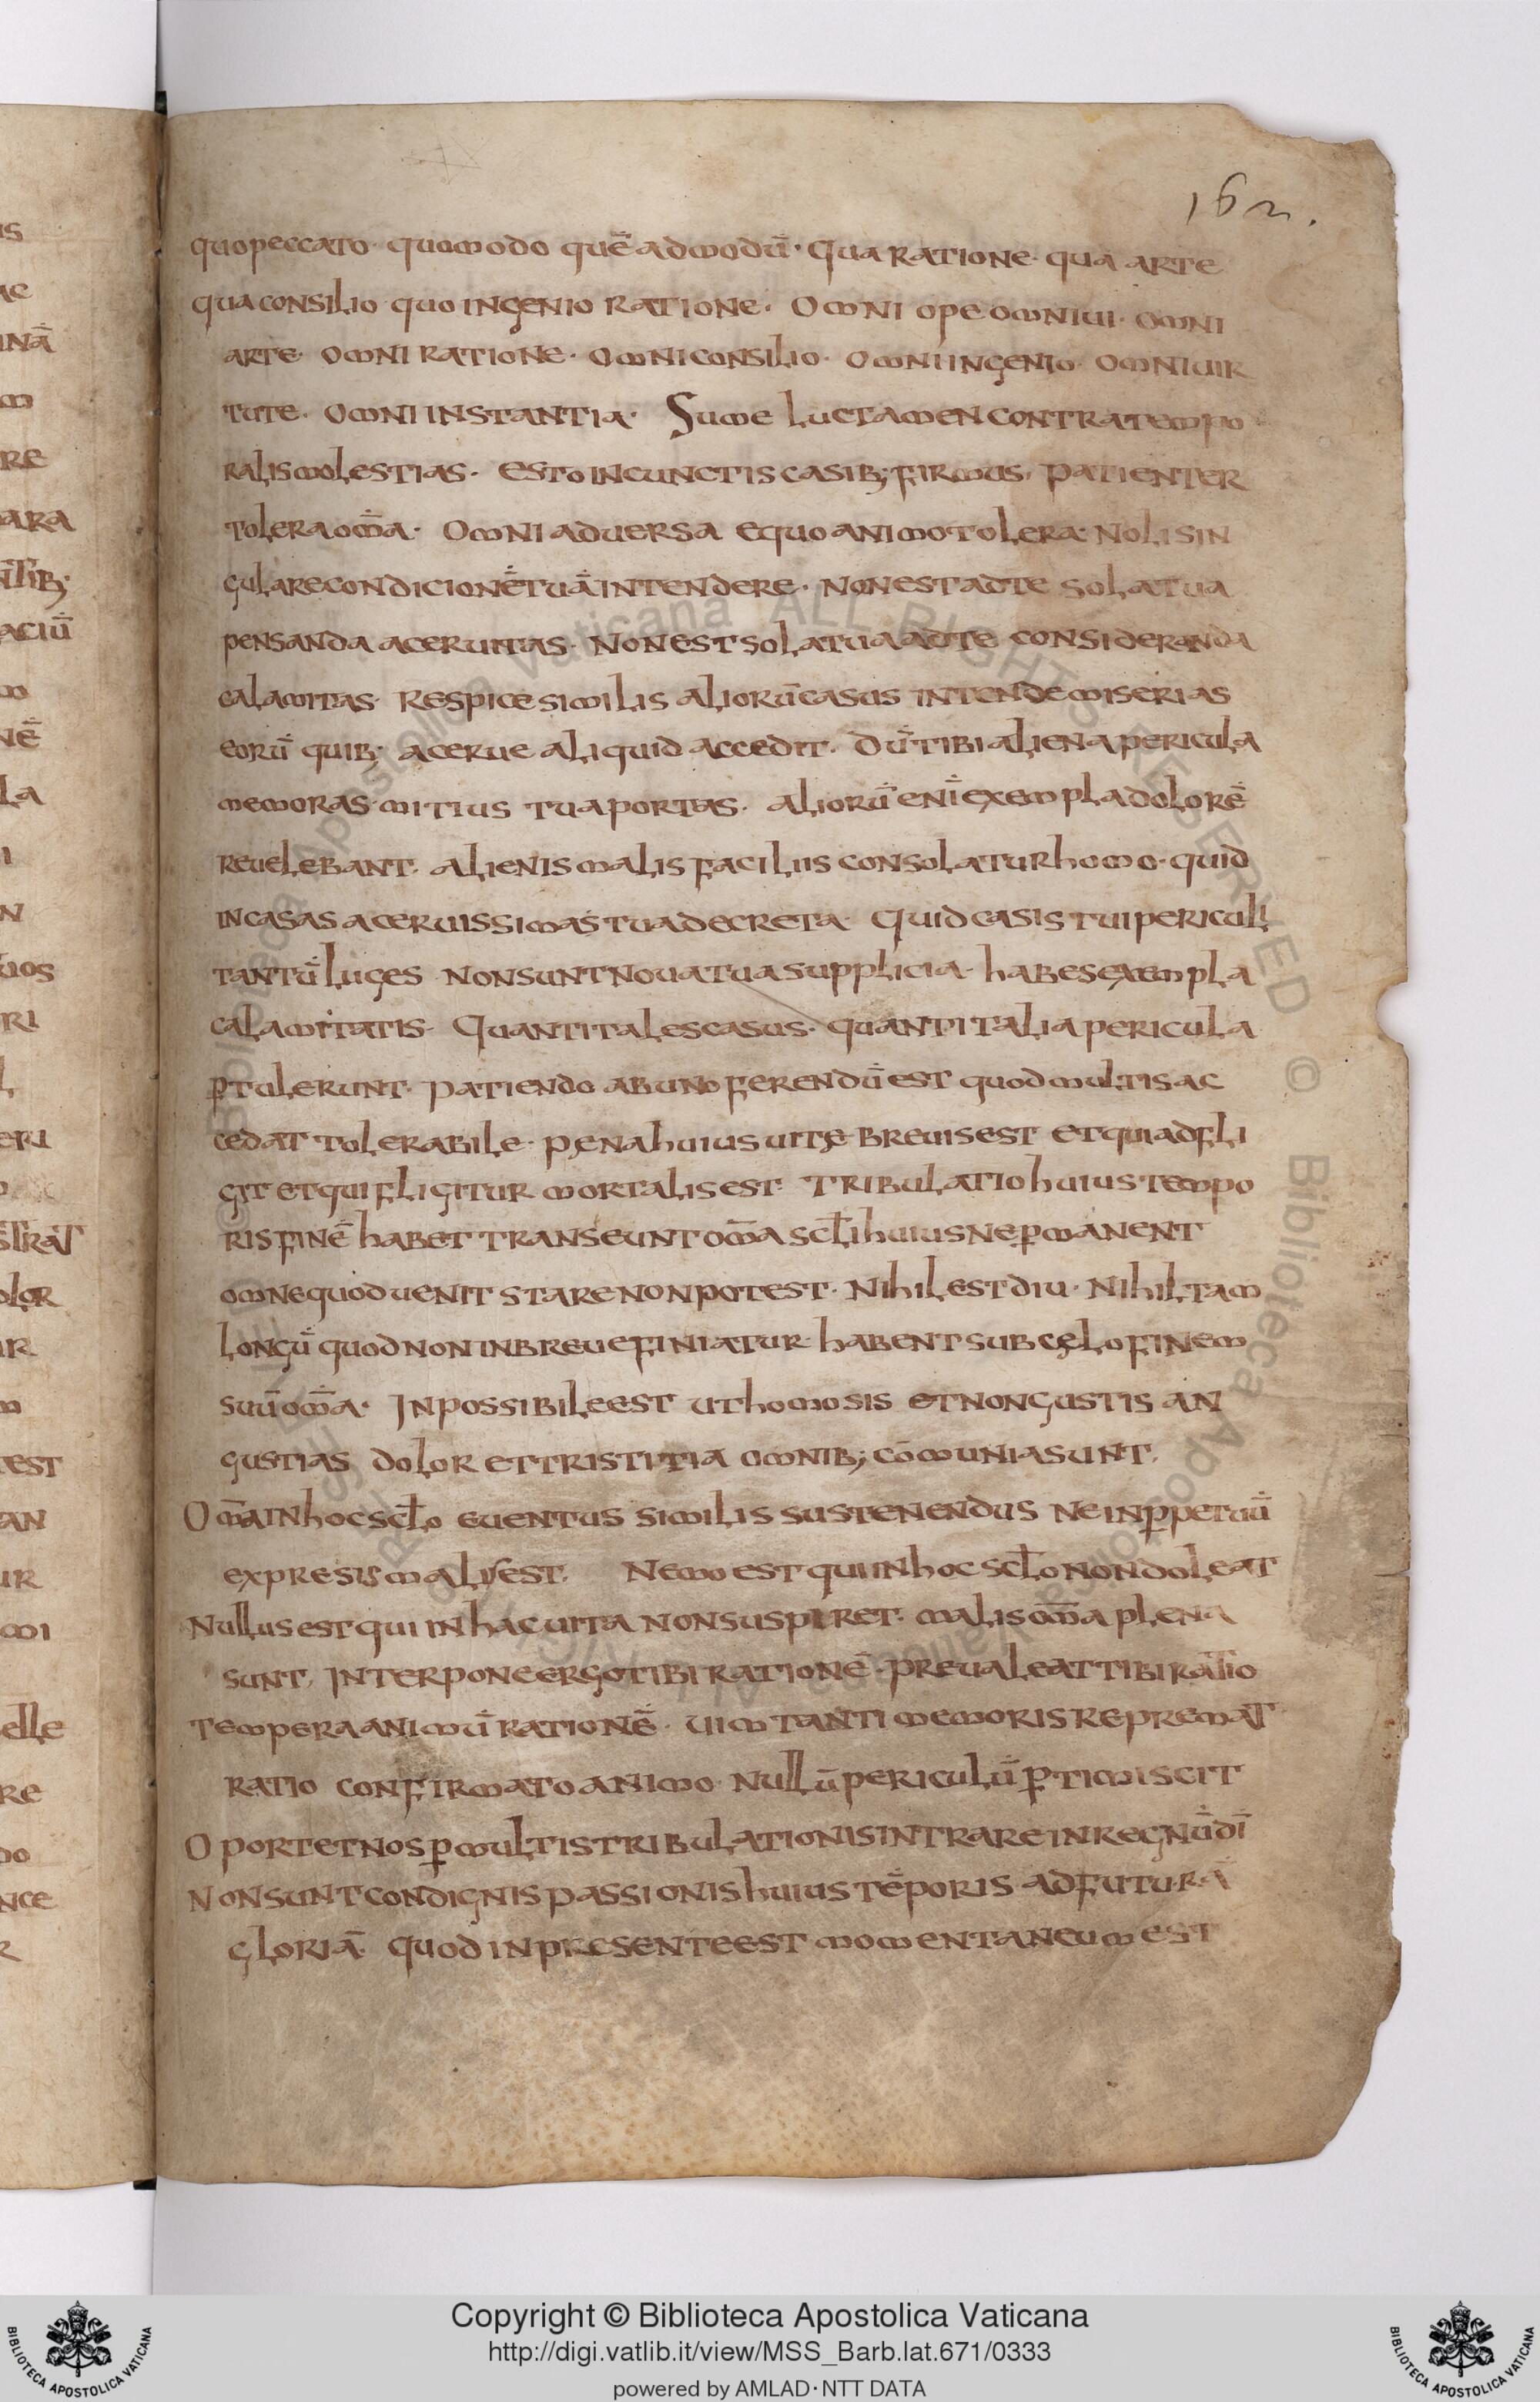 162.
quo peccato· quomodo quē admodū· Qua ratione· qua arte
qua consilio quo ingenio ratione· Omni ope omni ui· omni
arte· omni ratione· omni consilio· omni ingenio· omni uir
tute· omni instantia· Sume luctamen contra tempo
ralis molestias· esto in cunctis casib; firmus, patienter
tolera om̄a· Omni aduersa equo animo tolera· Noli sin
gulare condicionē tuā intendere· non est a te sola tua
pensanda aceruitas· Non est sola tua a te consideranda
calamitas· Respice similis aliorū casus intende miserias
eorū quib; acerue aliquid accedit· dū tibi aliena pericula
memoras· mitius tua portas· aliorū enī exempla dolorē
reuelebant· alienis malis facilius consolatur homo· quid
in casas aceruissimas tua decreta· Quid casis tui periculi
tantū luges· non sunt noua tua supplicia· habes exempla
calamitatis· Quanti tales casus· quanti talia pericula
ꝑtulerunt· patiendo ab uno ferendū est quod multis ac
cedat tolerabile· pena huius uitę breuis est et qui adfli
git et qui fligitur mortalis est· Tribulatio huius tempo
ris finē habet transeunt om̄a scłi huius ne ꝑmanent
omne quod uenit stare non potest· Nihil est diu· Nihil tam
longū quod non in breue finiatur· habent sub cęlo finem
suū om̄a· Inpossibile est ut homo sis et non gustis an
gustias dolor et tristitia omnib; cōmunia sunt,
Om̄a in hoc scło euentus similis sustenendus ne in ꝑpetuū
expresis malis est· Nemo est qui in hoc scło non doleat
Nullus est qui in hac uita non suspiret· malis om̄a plena
sunt, Interpone ergo tibi rationē· preualeat tibi ratio
Tempera animū rationē· uim tanti memoris repremat
ratio confirmato animo· Nullū periculū ꝑtimiscit
Oportet nos ꝑ multis tribulationis intrare in regnū dī
Non sunt condignis passionis huius tēporis ad futurā
gloriā· Quod in presente est momentaneum est
Copyright © Biblioteca Apostolica Vaticana
http://digi.vatlib.it/view/MSS_Barb.lat.671/0333
powered by AMLAD·NTT DATA
BIBLIOTECA APOSTOLICA VATICANA
BIBLIOTECA APOSTOLICA VATICANA